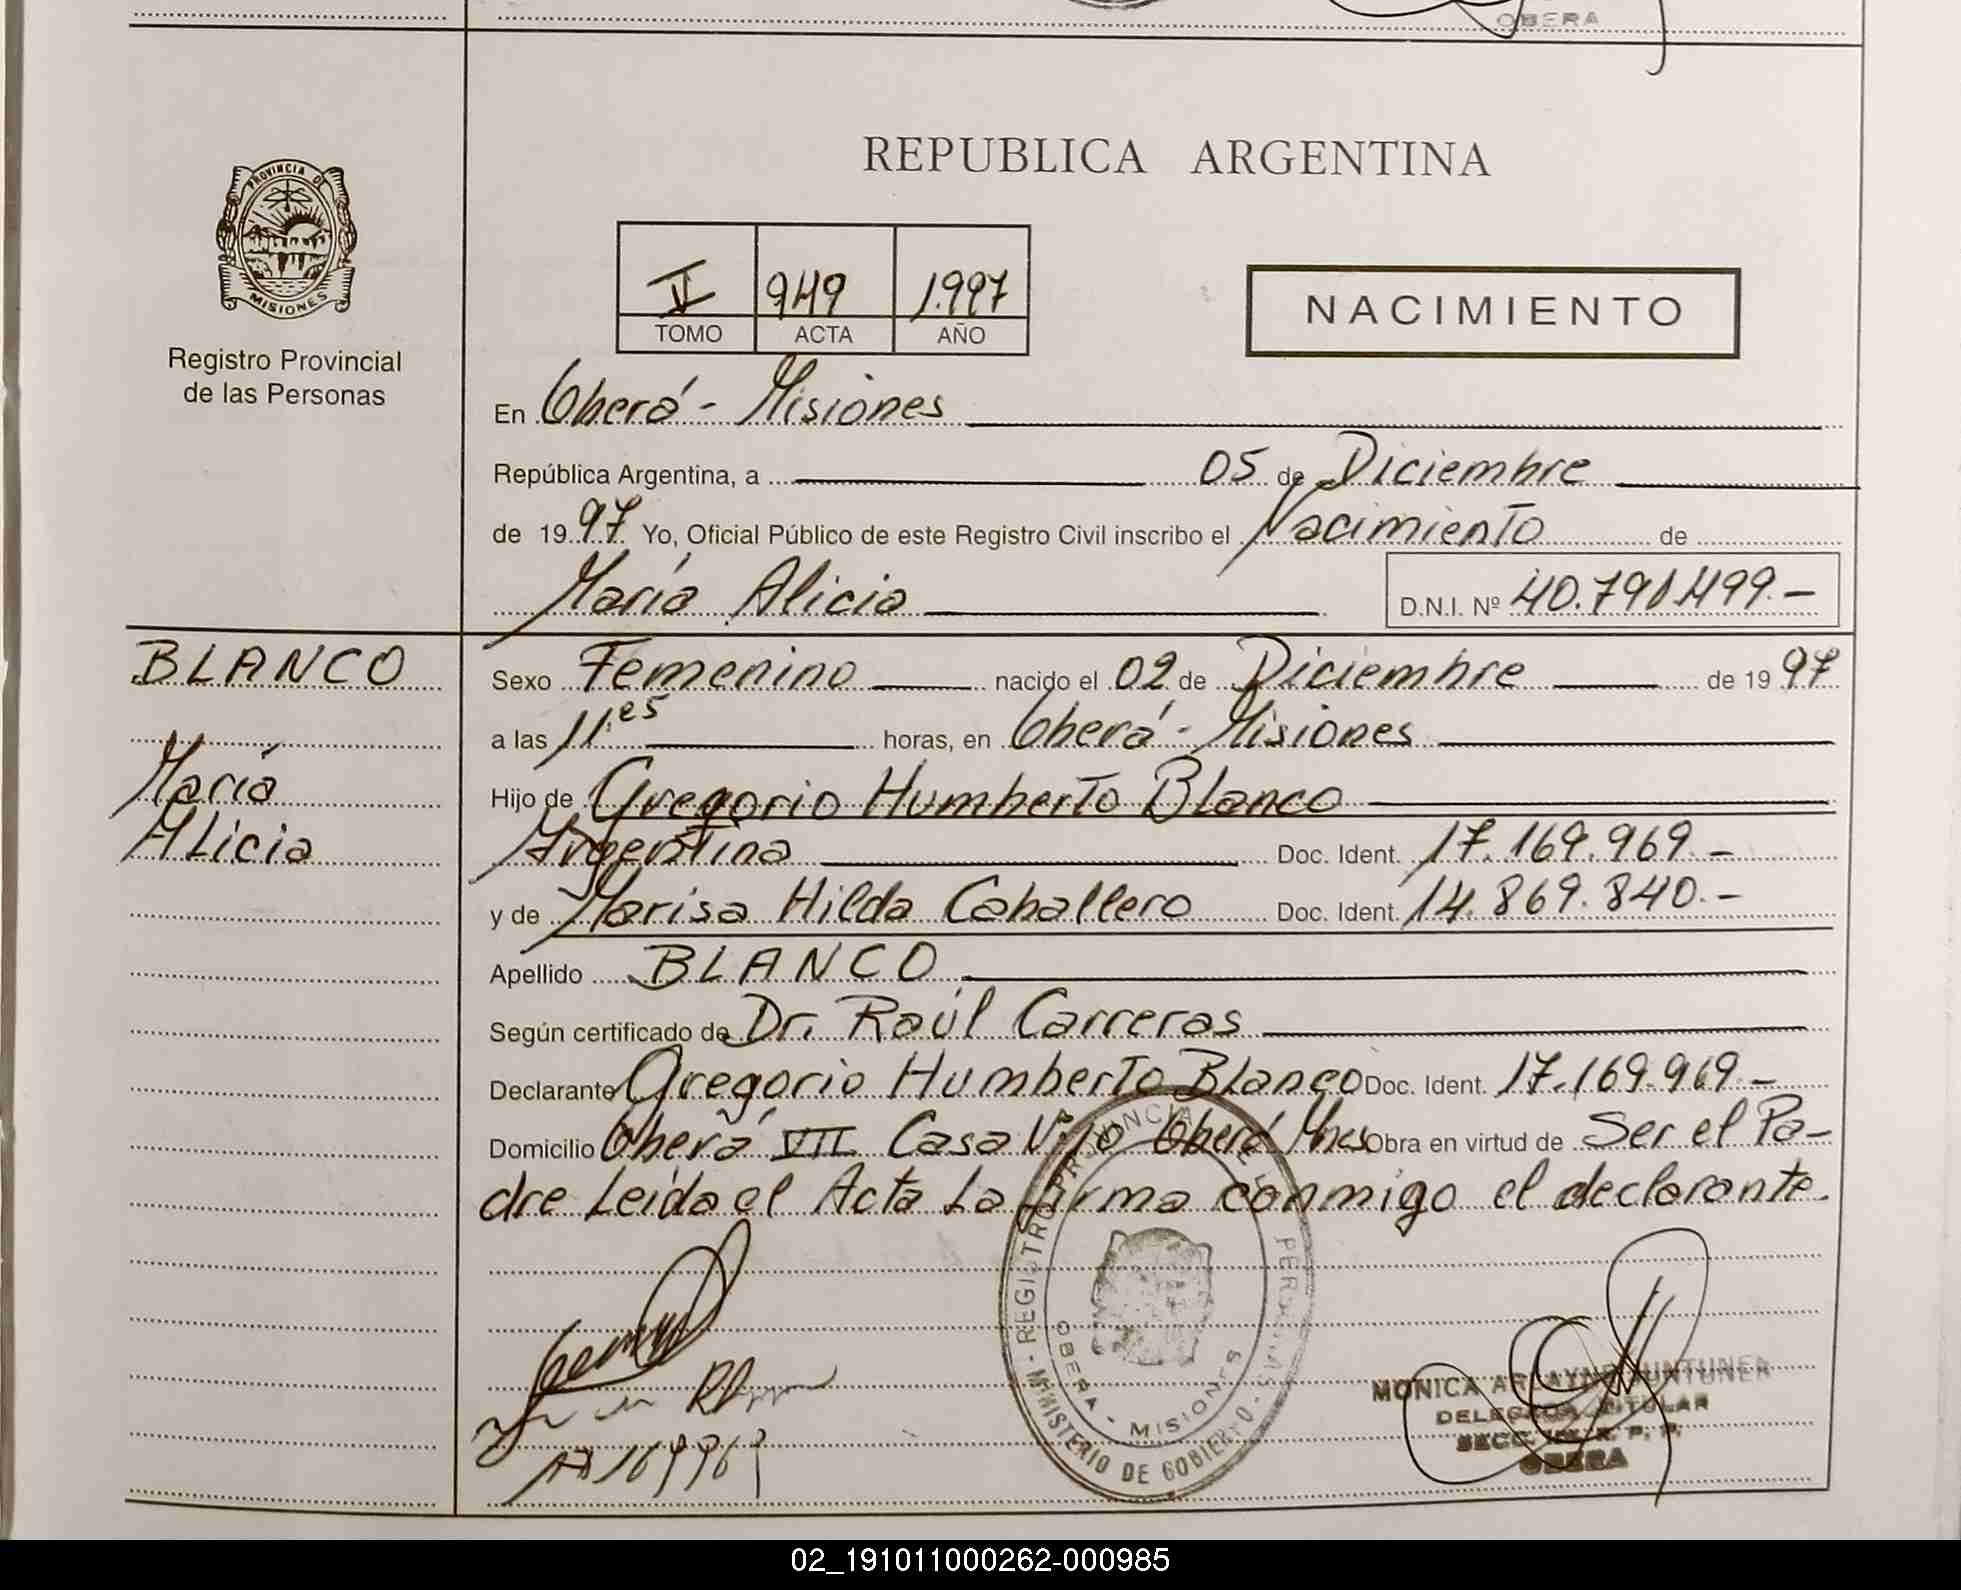 OBERA
REPUBLICA ARGENTINA
PROVINCIA DE
MISIONES
Registro Provincial
de las Personas
V 949 1.997
TOMO ACTA AÑO
NACIMIENTO
En Oberá - Misiones
República Argentina, a 05 de Diciembre
de 1997 Yo, Oficial Público de este Registro Civil inscribo el Nacimiento de
María Alicia D.N.I. Nº 40.790.499.-
BLANCO
María
Alicia
Sexo Femenino nacido el 02 de Diciembre de 1997
a las 11 es horas, en Oberá - Misiones
Hijo de Gregorio Humberto Blanco
Argentina Doc. Ident. 17.169.969.-
y de Marisa Hilda Caballero Doc. Ident. 14.869.840.-
Apellido BLANCO
Según certificado de Dr. Raúl Carreras
Declarante Gregorio Humberto Blanco Doc. Ident. 17.169.969.-
Domicilio Oberá VII Casa Oberá Mnes Obra en virtud de Ser el Pa-
dre Leida el Acta La firma conmigo el declarante.
REGISTRO PROVINCIAL DE LAS PERSONAS - MINISTERIO DE GOBIERNO -
OBERA - MISIONES
MONICA
DELEGADA TITULAR
SECC. R. P. P.
OBERA
02_191011000262-000985